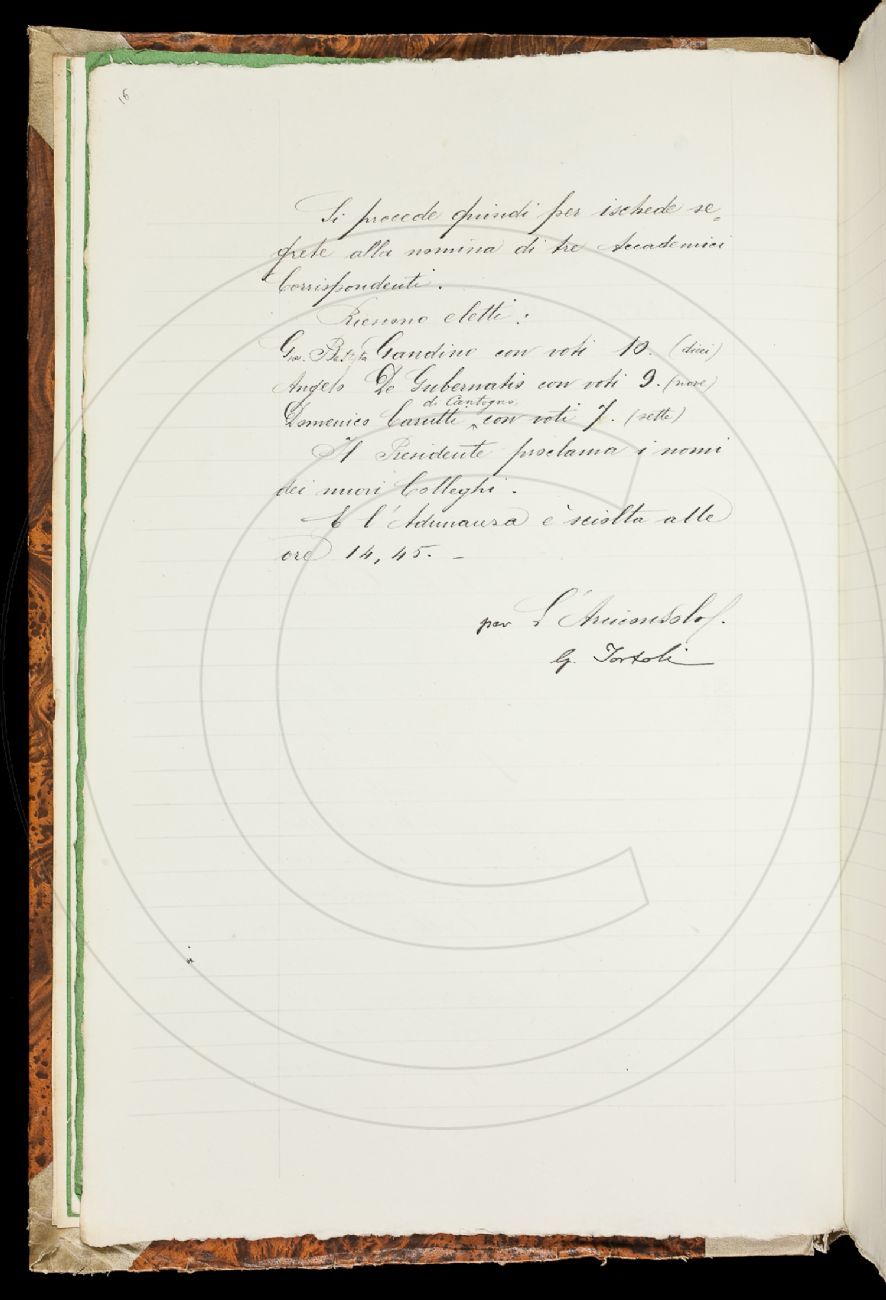 16
Si procede quindi per ischede se=
grete alla nomina di tre Accademici
Corrispondenti.
Riescono eletti:
Gio. Batista Gandino con voti 10. (dieci)
Angelo De Gubernatis con voti 9. (nove)
di Cantogno
Domenico Carutti con voti 7. (sette)
Il Presidente proclama i nomi
dei nuovi Colleghi.
E l'Adunanza è sciolta alle
ore 14,45. –
per L'Arciconsolo
G. Tortoli